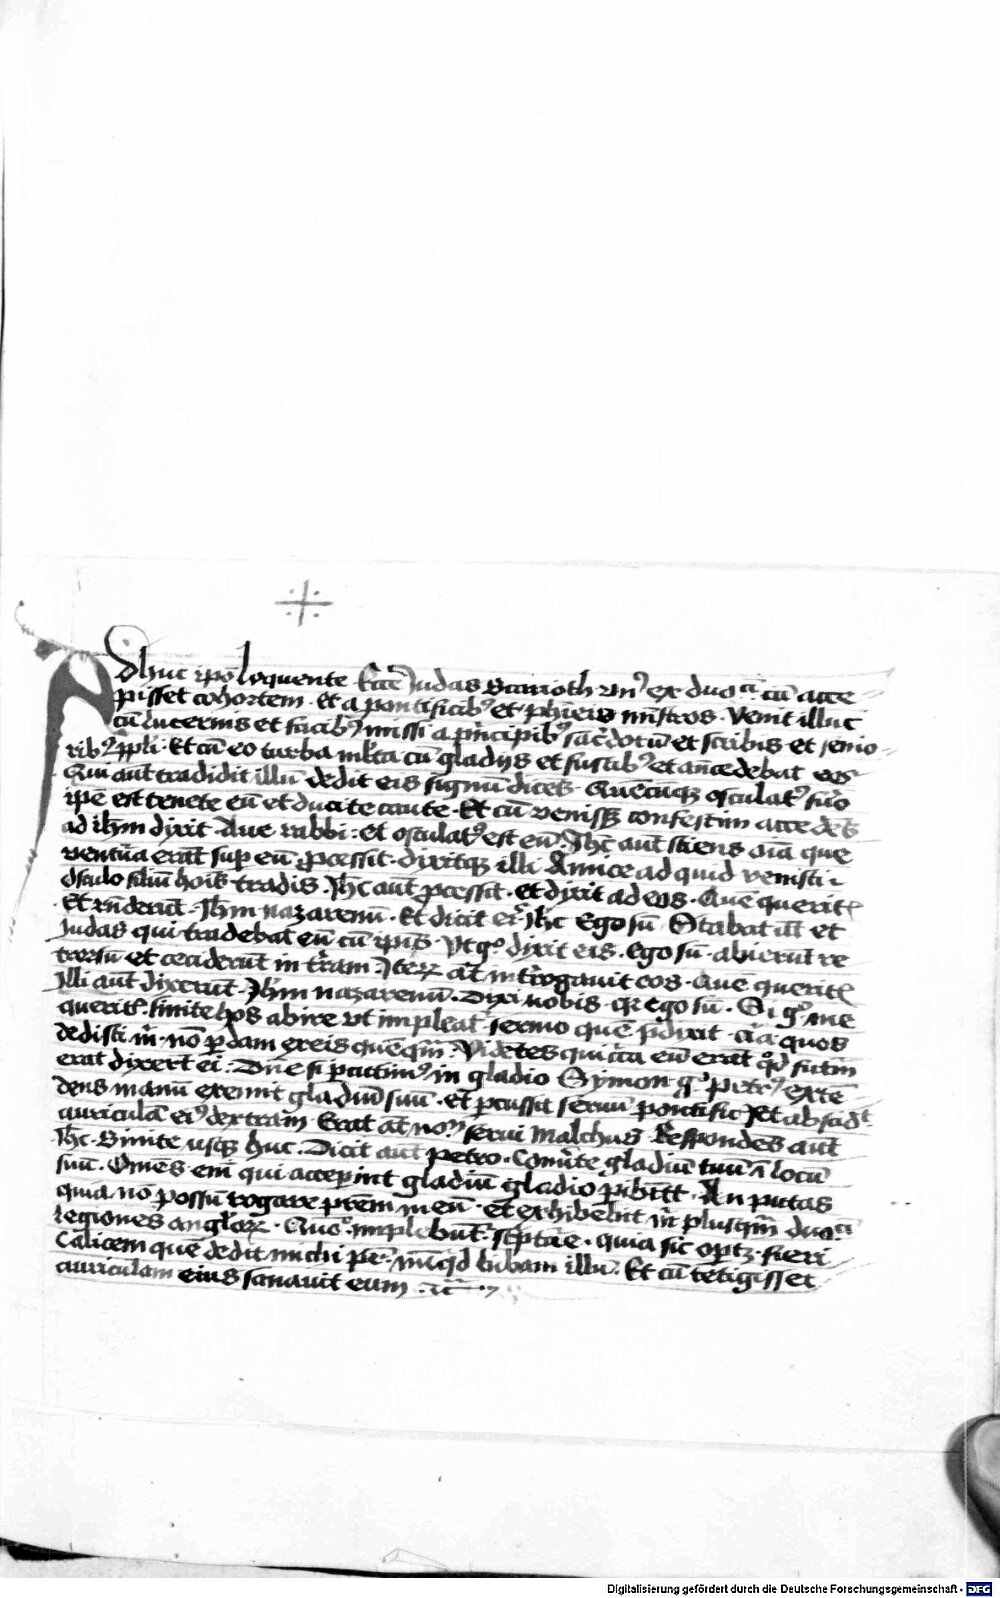 Adhuc ip̄o loquente Ecce Judas scarioth vn⁹ ex duo cū acce
pisset cohortem et a pontificib⁹ et phīseis mīstros venit illuc
cū lucernis et facib⁹ missi a p̄ncipib⁹ sac̄dotū et scribis et senio
rib⁹ pp̄li Et cū eo turba ml̄ta cū gladijs et fustib⁹ et an̄cedebat eos
Qui aūt tradidit illū dedit eis signū dicēs Quēcūqꝫ osculat⁹ fu͛o
ip̄e est tenete eū et ducite caute Et cū venissꝫ confestim accedēs
ad ih̄m dixit Aue rabbi et osculat⁹ est eū Ih̄c aūt sciens oīa que
ventūa erāt sup eū ꝓcessit dixitqꝫ illi Amice ad quid venisti
Osculo filiū hoīs tradis Ih̄c aūt ꝓcessit et dixit ad eos Quē querit͛
Et rn̄derūt Ih̄m nazarenū Et dicit ei͛ Ih̄c Ego sū Stabat et
Judas qui tradebat eū cū ip̄is Vt g° dixit eis Ego sū abierūt re
trorsū et ceciderūt in t͛ram Iteꝝ aūt int͛rogauit eos Quē querit͛
Illi aūt dixerūt Ih̄m nazarenū Dixi vobis qꝛ Ego sū Si g° me
querit͛ sinite hos abire vt impleat͛ sermo quē p̄dixit q̄a quos
dedisti m̄ nō ꝑdam ex eis quēq̄m Videtes qui cīca eū erāt qd̄ futm̄
erat dixerūt ei Dn̄e si ꝑcutim⁹ in gladio Symon g° petr⁹ extē
dens manū exemit gladiū suū et ꝑcussit seruū pontific͛ Et abscidt
auriculā ei⁹ dextram Erat aūt nomē serui Malchus Respondēs aūt
Ih̄c Sinite usqꝫ huc Dicit aūt petro Conu͛te gladiū tuū ī locū
suū Om̄es eni͛ qui acceꝑint gladiū gladio ꝑibūt An putas
quia nō possū rogare prēm meū et exhibebit m̄ plusq̄m duo
legiones angl̄oꝝ Quo͛ implebūt͛ sc͛ptūe quia sic op͛tꝫ fieri
Calicem quē dedit michi p͛r nūqd̄ bibam illū Et cū tetigisset
auriculam eius sanauit eum
Digitalisierung gefördert durch die Deutsche Forschungsgemeinschaft - DFG